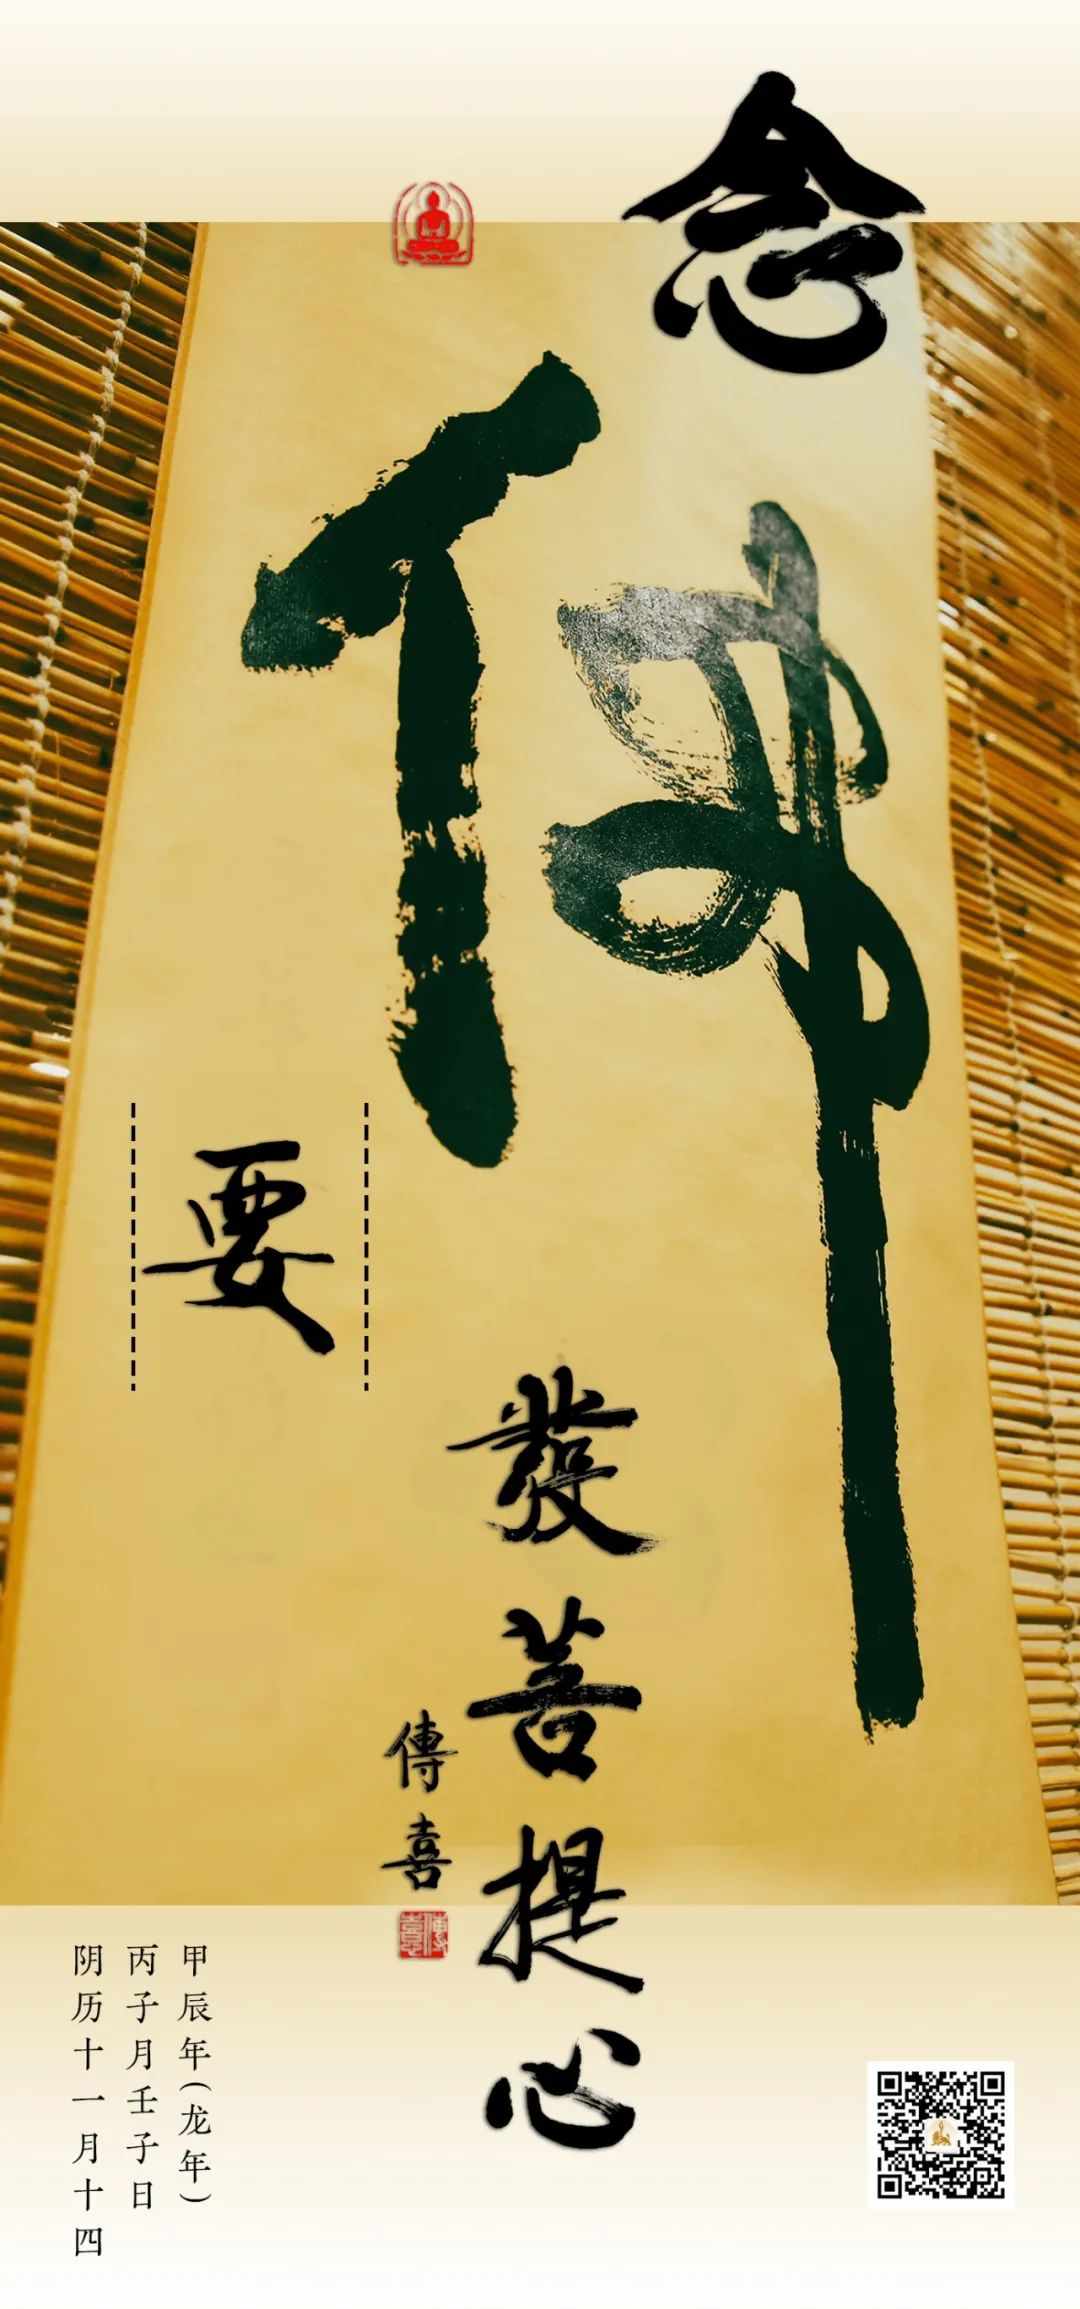 念
佛
要
發菩提心
傳喜
傳喜
甲辰年(龙年)
丙子月壬子日
阴历十一月十四